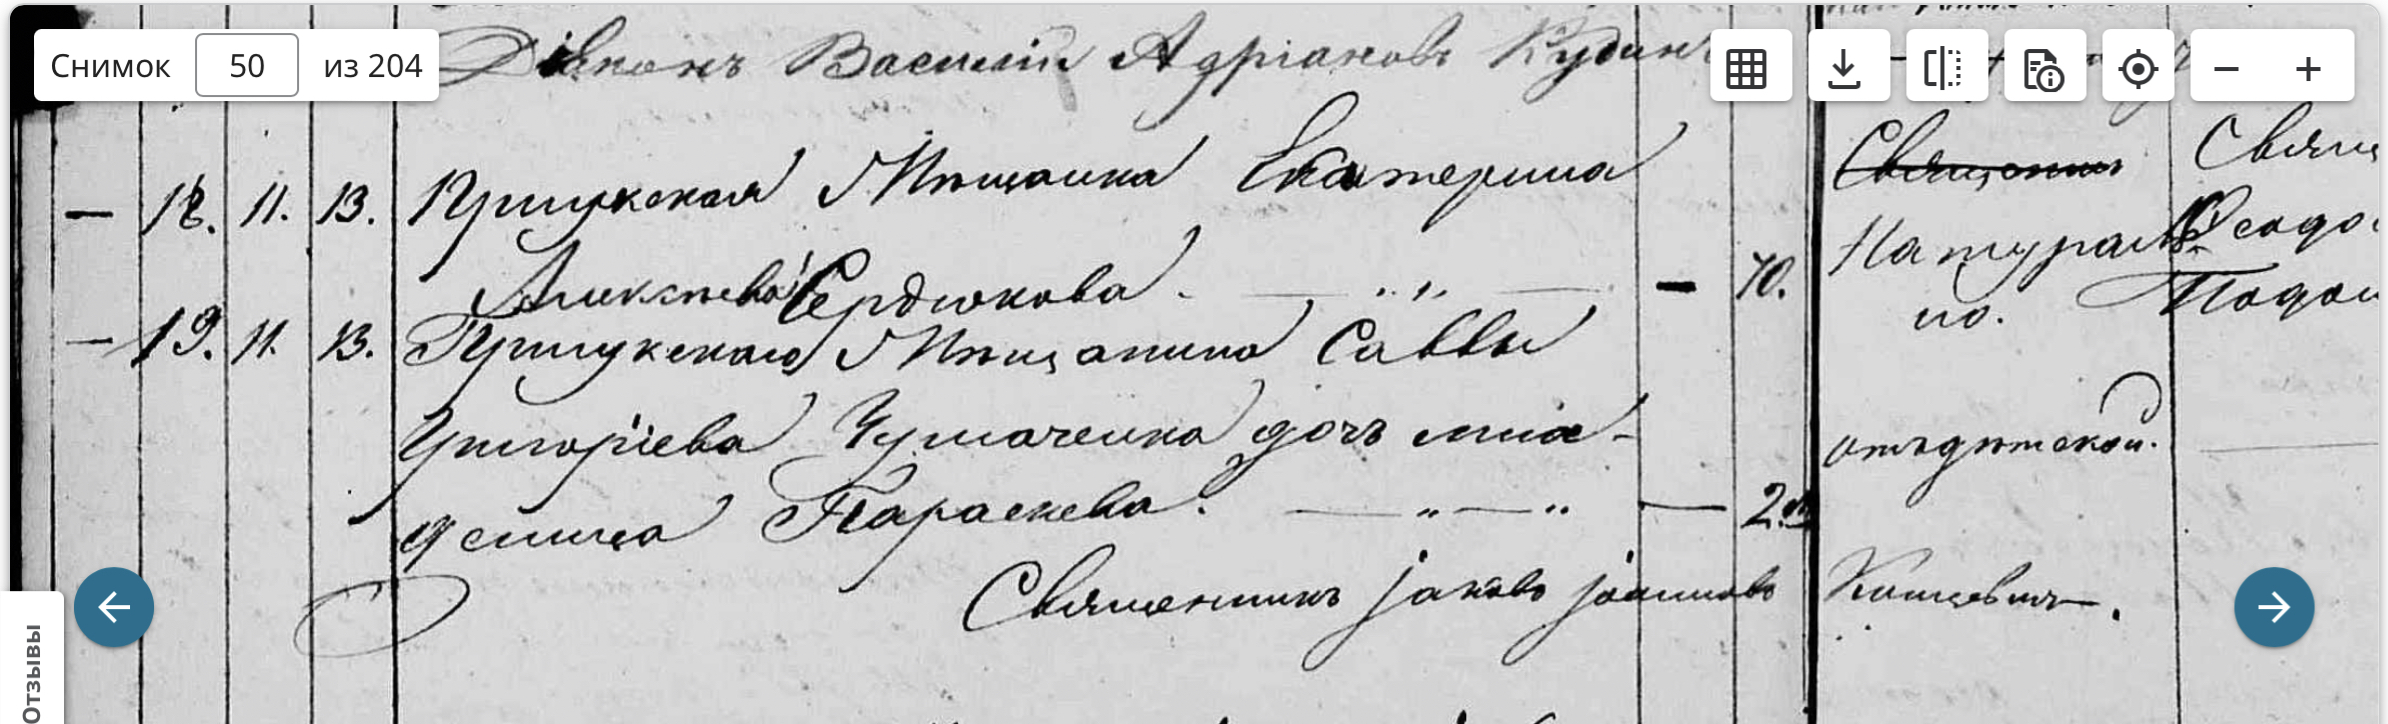 Снимок 50 из 204
Діяконъ Василій Адріановъ Кудин
— 18. 11. 13. Прилукская Мѣщанка Екатерина
Алексѣева Сердюкова. — „ — 70.
Священник
Натураль
но.
Свящ
Ѳеодо
Подол
— 19. 11. 13. Прилукскаго Мѣщанина Саввы
Григоріева Чумаченка дочь мла-
деница Параскева. — „ — „ — 2.
отъ дѣтской.
Священникъ Jаковъ Jоанновъ
Отзывы